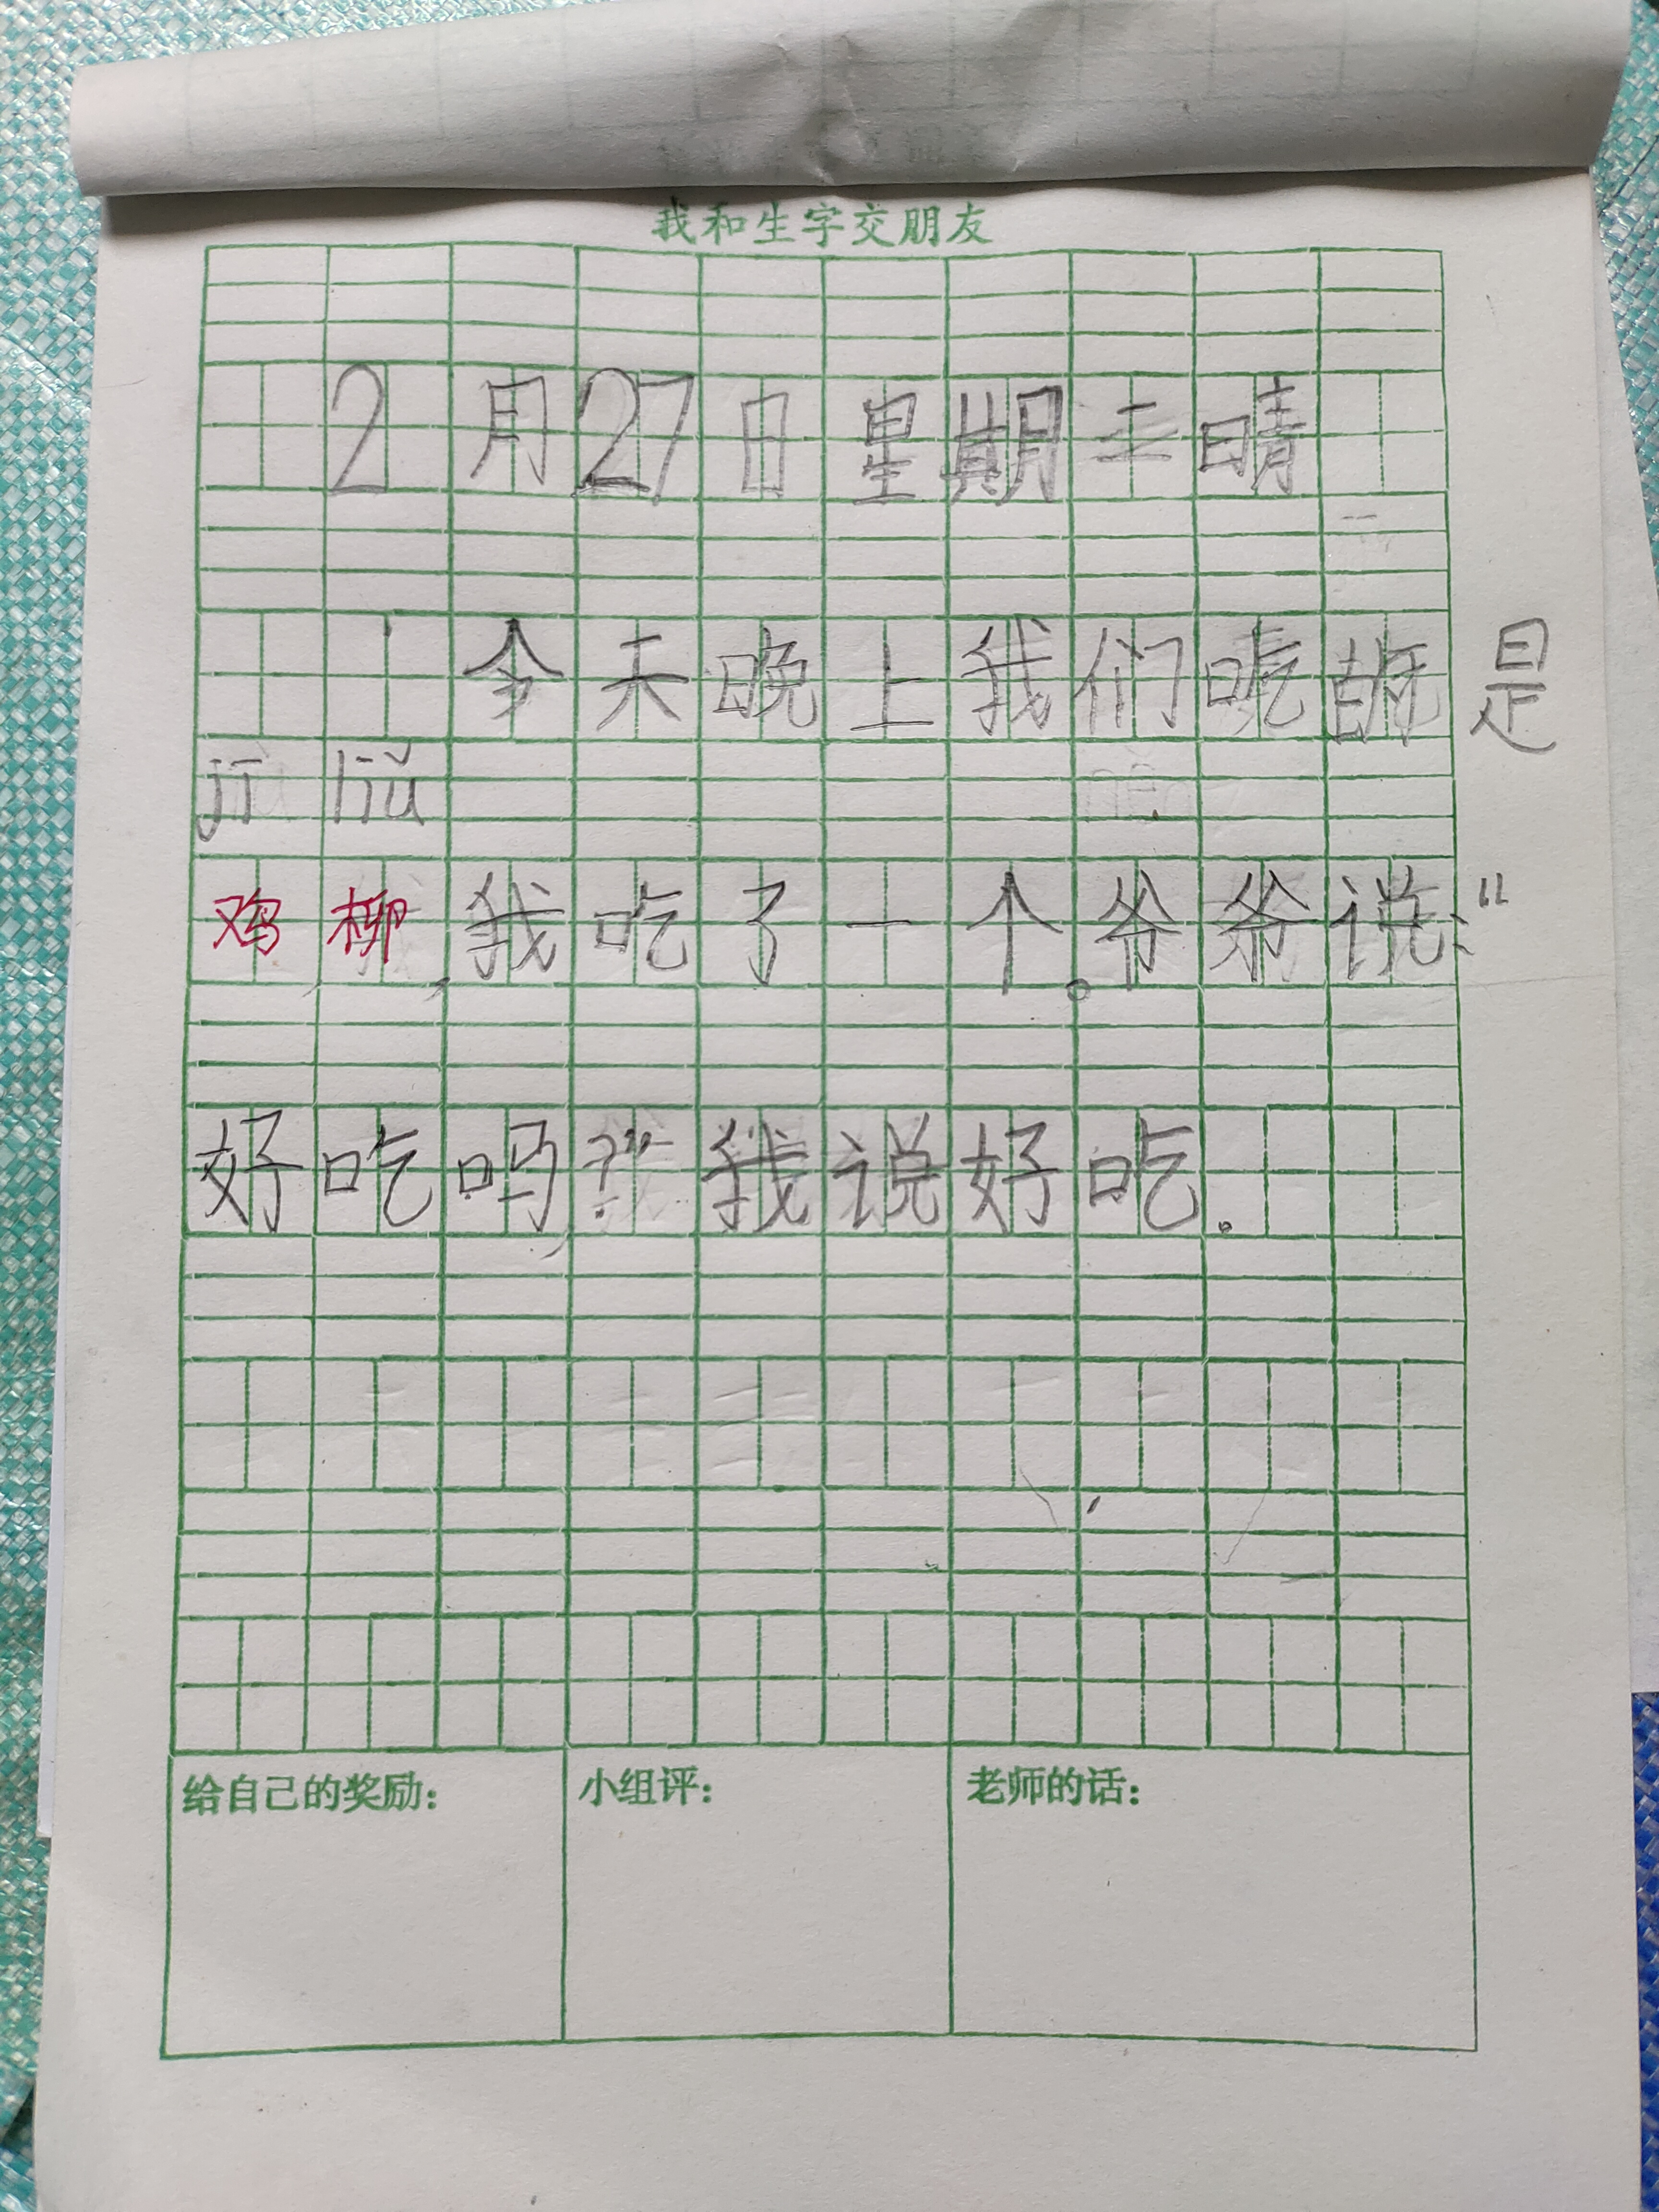 我和生字交朋友
2月27日星期二晴
今天晚上我们吃的是
jī liǔ
鸡柳,我吃了一个。爷爷说:“
好吃吗?”我说好吃。
给自己的奖励: 小组评: 老师的话: